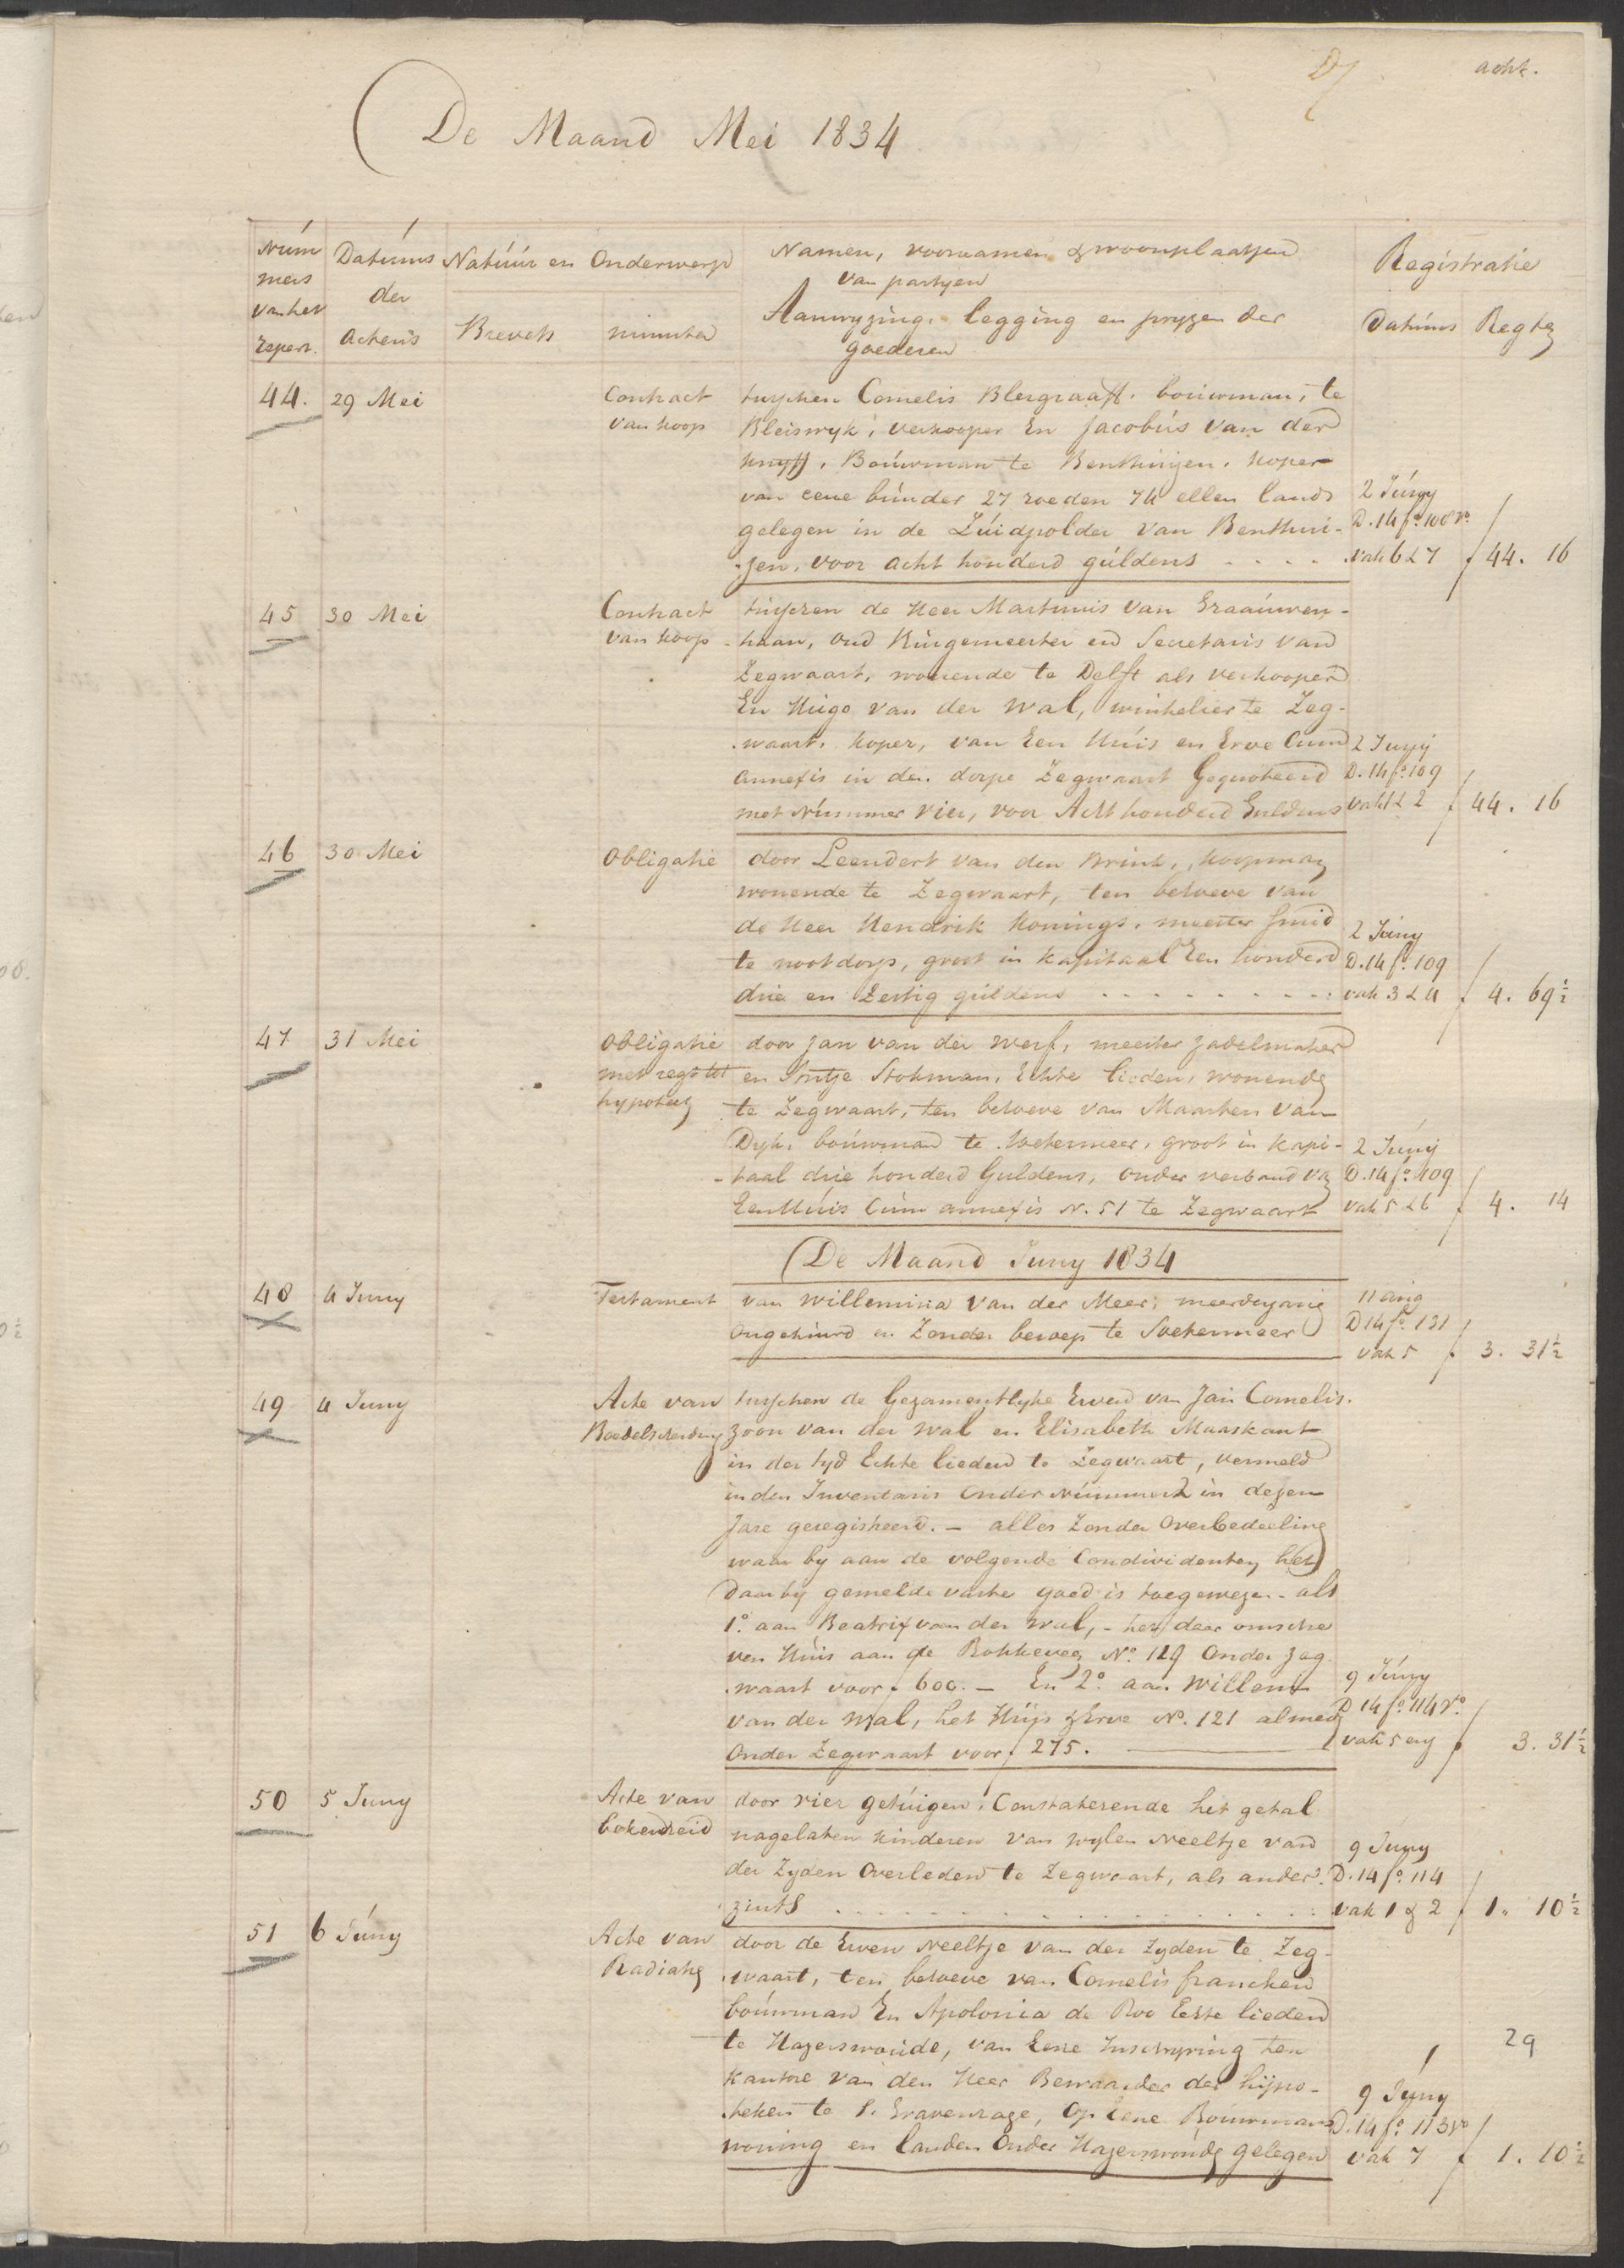 acht.
De Maand Mei 1834
Num
mers
van het
repert.
Datums
der
acten's
Natúúr en Onderwerp
Brevets
minuten
Namen, voornamen & woonplaatsen
van partyen
Aanwyzing, legging en pryzen der
goederen
Registratie
Datúms Regten
44. 29 Mei
Contract
van koop
tusschen Cornelis Blergraaff, bouwman, te
Bleiswyk, verkooper En Jacobús van der
knyff, Boúwman te Benthuijen, koper
van eene búnder 27 roeden 74 ellen lands
gelegen in de Zúidpolder van Benthui-
zen, voor acht honderd gúldens . . . .
2 Júny
D. 14 fo. 108 vo.
vak 6 & 7 f 44. 16
45 30 Mei
Contract
van koop
tusschen de Heer Martinus van Graaúwen-
haan, oud Búrgemeester en Secretaris van
Zegwaart, wonende te Delft als verkooper
En Húgo van der Wal, winkelier te Zeg-
waart, koper, van Een Húis en Erve Cum
annexis in den dorpe Zegwaart Gequoteerd
met Númmer vier, voor Acht honderd Guldens
2 Juny
D. 14 fo. 109
vak 1 & 2 f 44. 16
46 30 Mei
Obligatie
door Leendert van den Brink, koopman
wonende te Zegwaart, ten behoeve van
de Heer Hendrik Konings, meester smid
te nootdorp, groot in kapitaal Een honderd
drie en Zestig gúldens . . . . . . . . .
2 Júny
D. 14 fo. 109
vak 3 & 4 f 4. 69½
47 31 Mei
Obligatie
met regt tot
hypoteek
door Jan van der Werf, meester zadelmaker
en Stokman, Echte lieden, wonende
te Zegwaart, ten behoeve van Maarten van
Dyk, boúwman te Soetermeer, groot in kapi-
taal drie honderd Guldens, onder verband van
Een Húis Cúm annexis N. 51 te Zegwaart
2 Júny
D. 14 fo. 109
vak 5 & 6 f 4. 14
De Maand Juny 1834
48 4 Juny
Testament
van Willemina van der Meer, meerderjarig
ongehúwd en Zonder beroep te Soetermeer
11 aug
D 14 fo. 131
vak 5 f 3. 31½
49 4 Juny
Acte van
Boedelscheiding
tusschen de Gezamentlyke Erven van Jan Cornelis-
zoon van der Wal en Elisabeth Maaskant
in der tyd Echte lieden te Zegwaart, vermeld
in den Inventaris onder Númmer 2 in dezen
Jare geregistreerd. — alles Zonder overbedeeling
waar by aan de volgende Condividenten het
daar bij gemelde vaste goed is toegewezen - als
1o. aan Beatrix van der Wal, - het daar omschre
ven Húis aan de Rokkeveen No. 119 Onder Zeg
waart voor f 600. — En 2o. aan Willem
van der Wal, het Húis & Erve No. 121 almede
Onder Zegwaart voor f 275.
9 Júny
D 14 fo. 114 vo.
vak 5 f 3. 31½
50 5 Juny
Acte van
bekendheid
door vier getúigen, Constaterende het getal
nagelaten kinderen van wylen Neeltje van
der Zyden Overleden te Zegwaart, als ander-
zints . . . . . . . . . . . . . . . .
9 Juny
D. 14 fo. 114
vak 1 & 2 f 1. 10½
51 6 Júny
Acte van
Radiatie
door de Erven Neeltje van der Zyden te Zeg-
waart, ten behoeve van Cornelis Francken
boúwman En Apolonia de Roo Echte lieden
te Hazerswoúde, van Eene Inschryving ten
kantore van den Heer Bewaarder der hijpo-
teken te S. Gravenhage, Op eene Boúwmans
woning en landen Onder Hazerswoúde gelegen
29
9 Júny
D. 14 fo. 113 vo
vak 7 f 1. 10½